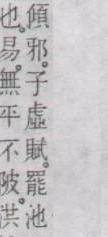 傾邪。子虛賦。罷池
也。易。無平不陂。洪